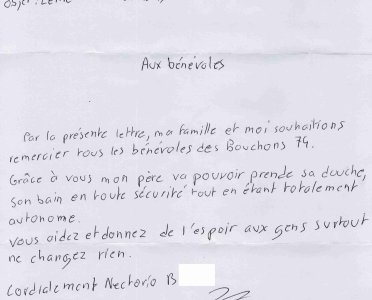 Aux bénévoles
Par la présente lettre, ma famille et moi souhaitions
remercier tous les bénévoles des Bouchons 74.
Grâce à vous mon père va pouvoir prende sa douche,
son bain en toute sécurité tout en étant totalement
autonome.
Vous aidez et donnez de l'espoir aux gens surtout
ne changez rien.
Cordialement Nectorio B